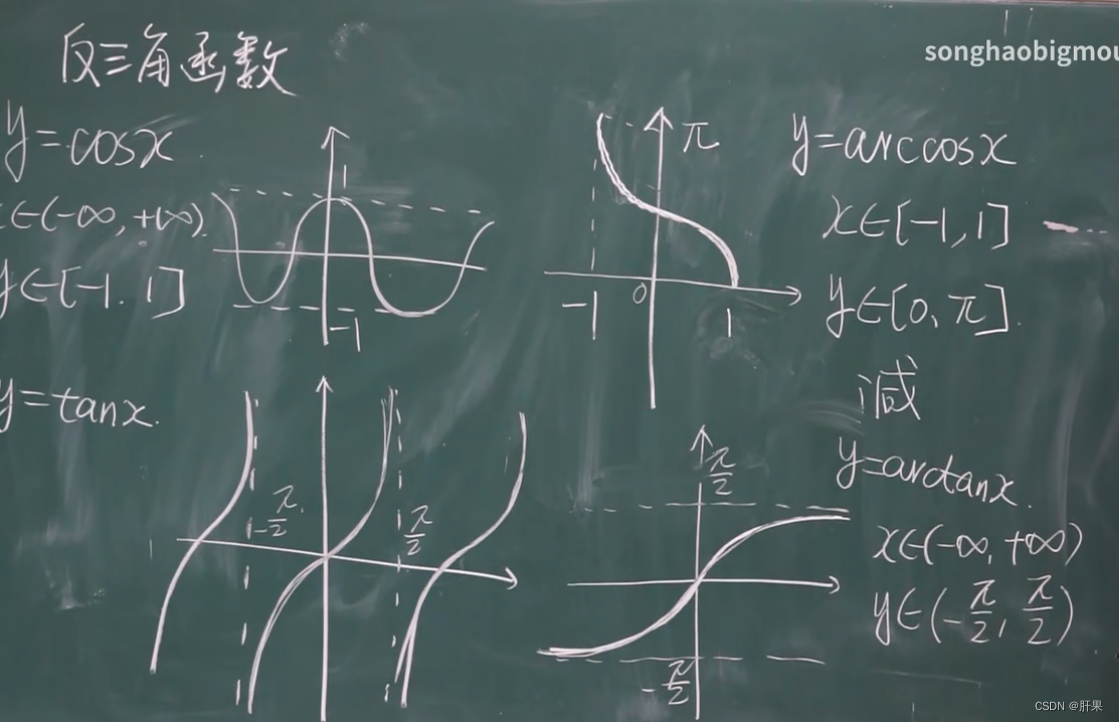 反三角函数
songhaobigmou
y=cosx
x∈(-∞,+∞)
y∈[-1.1]
1
-1
π
-1
0
1
y=arccosx
x∈[-1,1]
y∈[0,π].
减
y=tanx.
-π/2
π/2
π/2
-π/2
y=arctanx.
x∈(-∞,+∞)
y∈(-π/2,π/2)
CSDN @肝果